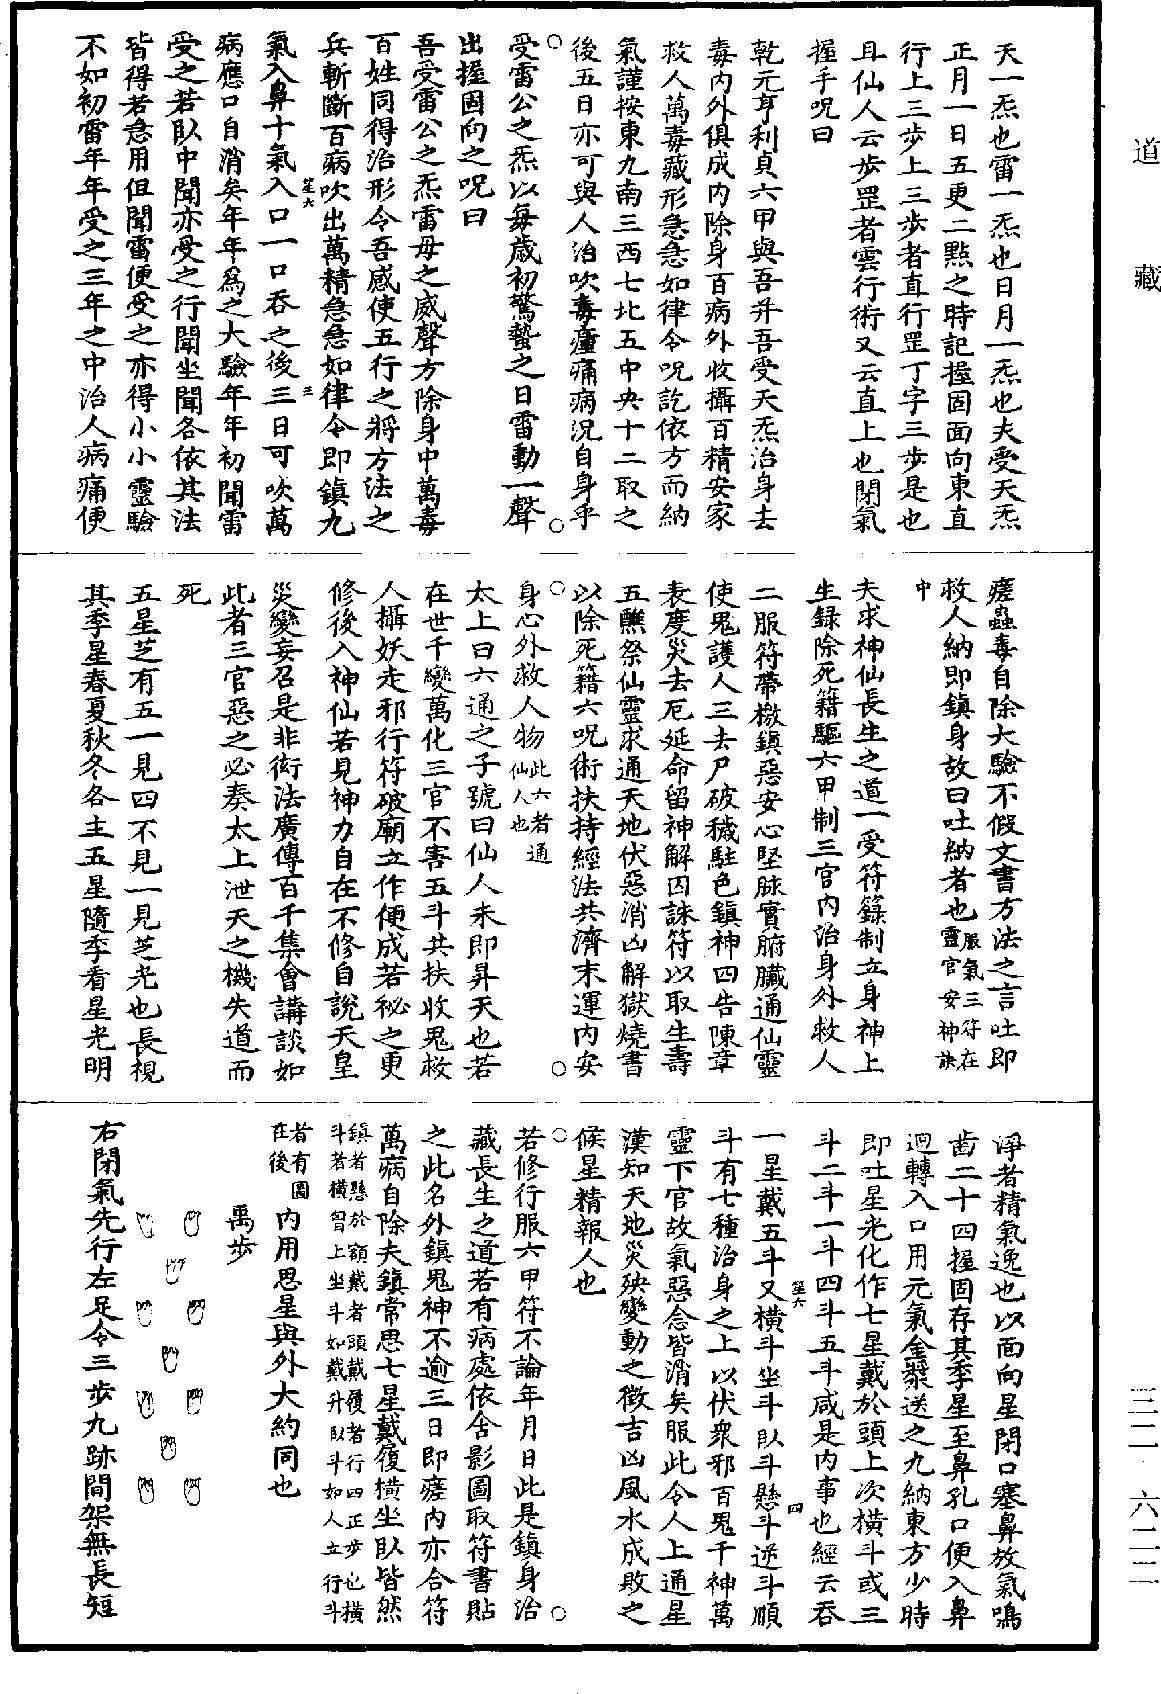 道藏
天一炁也雷一炁也日月一炁也夫受天炁
正月一日五更二點之時記握固面向東直
行上三步上三步者直行罡丁字三步是也
且仙人云步罡者雲行術又云直上也閉氣
握手呪曰
乾元亨利貞六甲與吾并吾受天炁治身去
毒內外俱成內除身百病外收攝百精安家
救人萬毒藏形急急如律令呪訖依方而納
氣謹按東九南三西七北五中央十二取之
後五日亦可與人治吹毒瘇痛病況自身乎
受雷公之炁以每歲初驚蟄之日雷動一聲
出握固向之呪曰
吾受雷公之炁雷母之威聲方除身中萬毒
百姓同得治形令吾感使五行之將方法之
兵斬斷百病吹出萬精急急如律令即鎮九
氣入鼻十氣入口一口吞之後三日可吹萬
病應口自消矣年年爲之大驗年年初聞雷
受之若臥中聞亦受之行聞坐聞各依其法
皆得若急用但聞雷便受之亦得小小靈驗
不如初雷年年受之三年之中治人病痛便
瘥蟲毒自除大驗不假文書方法之言吐即
救人納即鎮身故曰吐納者也服氣三符在靈官安神訣
中
夫求神仙長生之道一受符籙制立身神上
生録除死籍驅六甲制三官內治身外救人
二服符帶檄鎮惡安心堅脉實腑臟通仙靈
使鬼護人三去尸破穢駐色鎮神四告陳章
表度災去厄延命留神解囚誅符以取生壽
五醮祭仙靈求通天地伏惡消凶解獄燒書
以除死籍六呪術扶持經法共濟末運內安
身心外救人物此六者通仙人也
太上曰六通之子號曰仙人未即昇天也若
在世千變萬化三官不害五斗共扶收鬼救
人攝妖走邪行符破廟立作便成若祕之更
修後入神仙若見神力自在不修自說天皇
災變妄召是非衒法廣傳百千集會講談如
此者三官惡之必奏太上泄天之機失道而
死
五星芝有五一見四不見一見芝光也長視
其季星春夏秋冬各主五星隨季看星光明
淨者精氣逸也以面向星閉口塞鼻放氣鳴
齒二十四握固存其季星至鼻孔口便入鼻
迴轉入口用元氣金漿送之九納東方少時
即吐星光化作七星戴於頭上次橫斗或三
斗二斗一斗四斗五斗咸是內事也經云吞
一星戴五斗又橫斗坐斗臥斗懸斗逆斗順
斗有七種治身之上以伏衆邪百鬼千神萬
靈下官故氣惡念皆消矣服此令人上通星
漢知天地災殃變動之徵吉凶風水成敗之
候星精報人也
若修行服六甲符不論年月日此是鎮身治
藏長生之道若有病處依舍影圖取符書貼
之此名外鎮鬼神不逾三日即瘥內亦合符
萬病自除夫鎮常思七星戴復橫坐臥皆然
鎮者懸於額戴者頭戴復者行四正步也橫
斗若橫曾上坐斗如戴升臥斗如人立行斗
者有圖在後內用思星與外大約同也
禹步
右閉氣先行左足令三步九跡間架無長短
三二 六二二